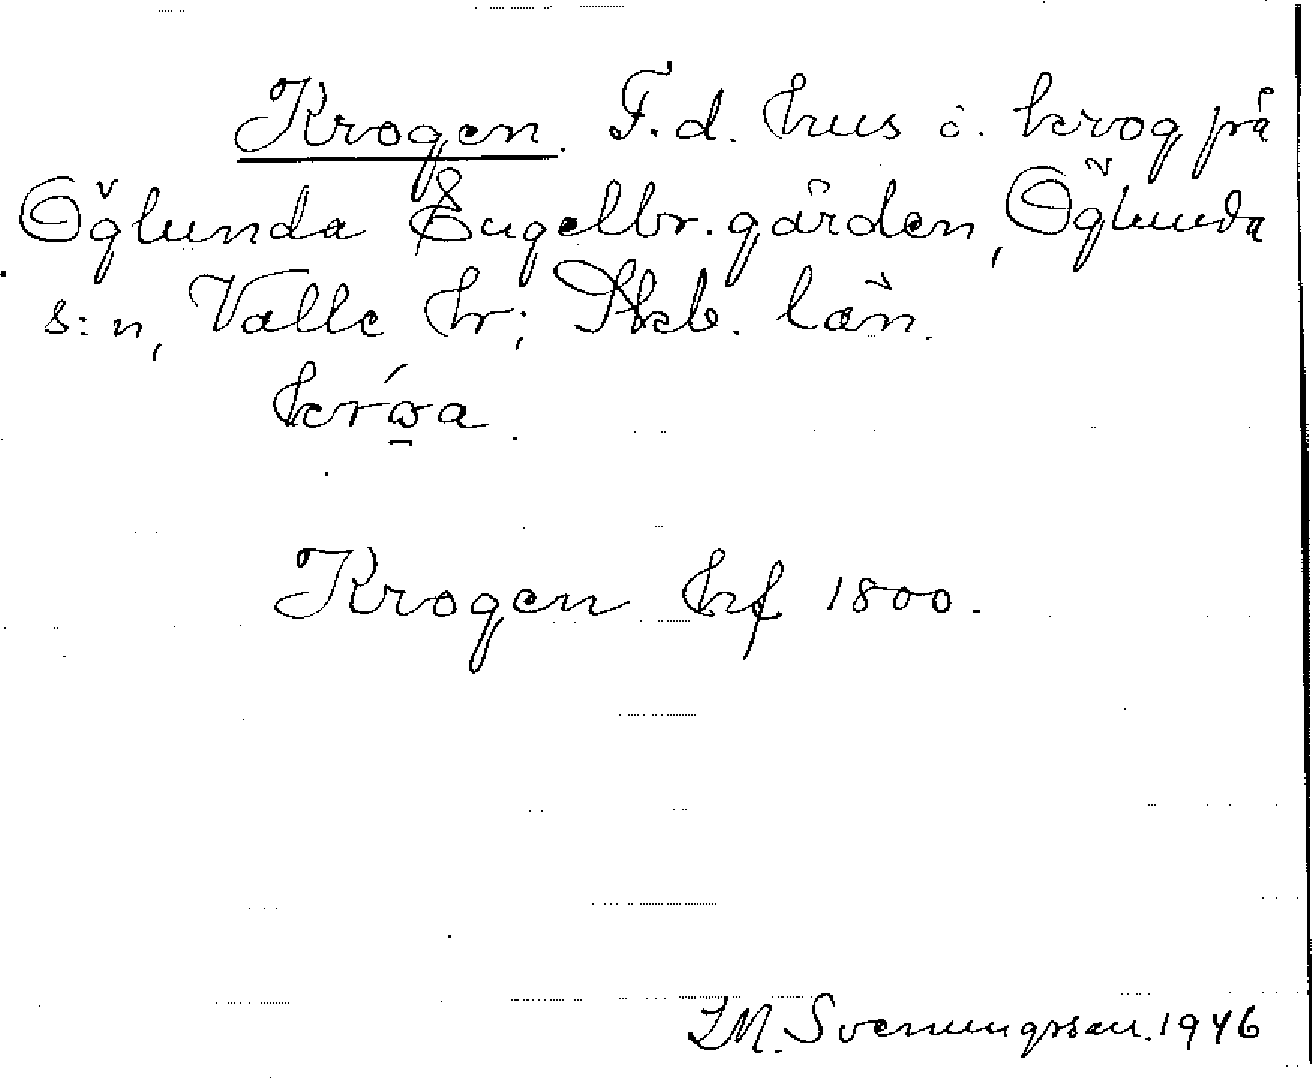 Krogen. F.d. hus o. krog på
Öglunda Engelbr. gården, Öglunda
s:n, Valle hr; Skb. län.
Krogen hf 1800.
Svenungsson. 1946